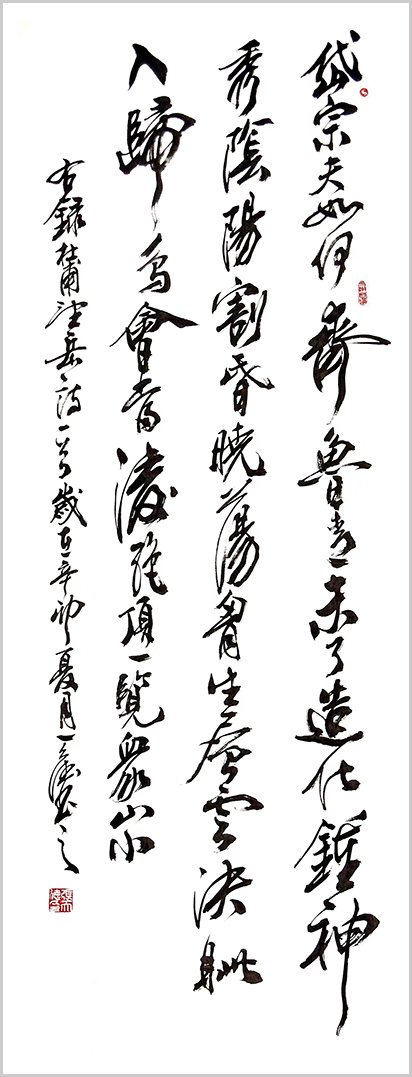 岱宗夫如何齊魯青未了造化鍾神
秀陰陽割昏曉蕩胷生層雲決眦
入歸鳥會當凌絶頂一覽衆山小
右錄杜甫望岳詩一首歲在辛卯夏月